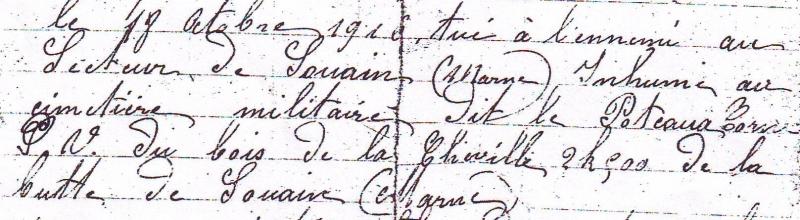 le 18 octobre 1916, tué à l'ennemi au
Secteur de Souain (Marne) Inhumé au
cimetière militaire dit le Poteau
P. V. du bois de la Cheville 2k500 de la
butte de Souain (Marne)